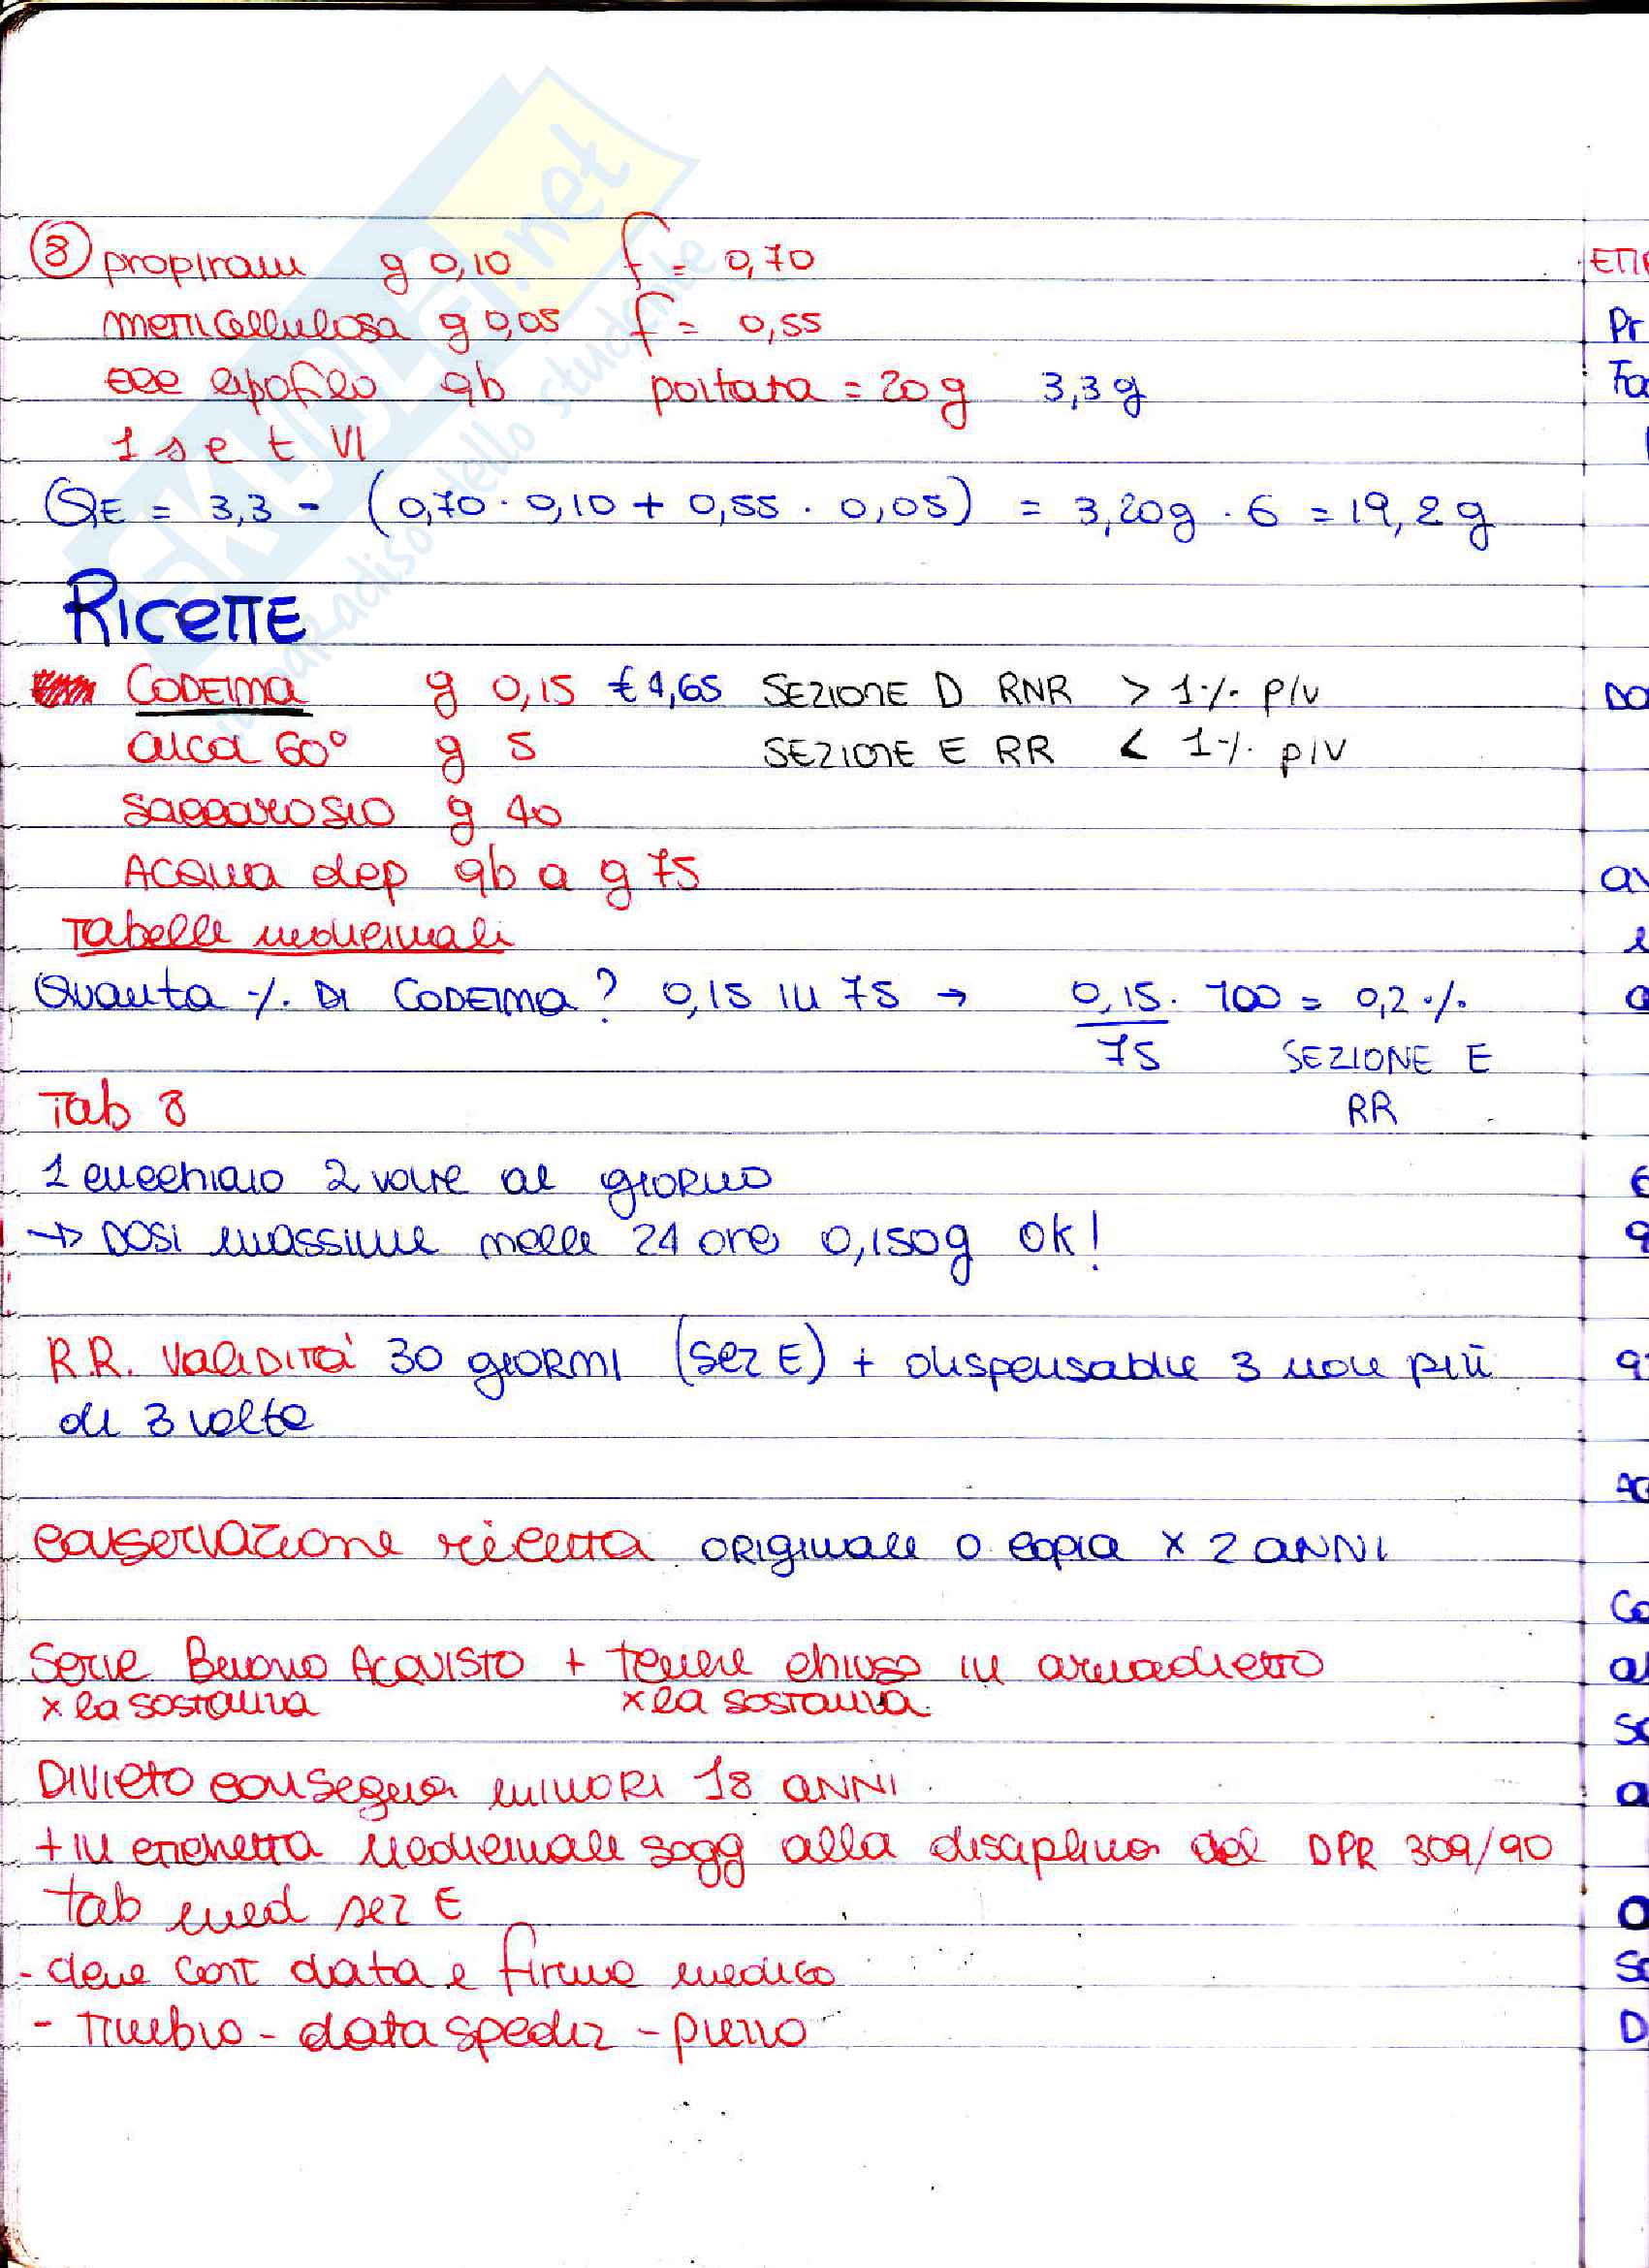 8 propiram g 0,10 f = 0,70
metilcellulosa g 0,05 f = 0,55
ecc lipofilo qb portata = 20g 3,3g
1 s e t VI
QE = 3,3 - (0,70 · 0,10 + 0,55 · 0,05) = 3,20g · 6 = 19,2g
RICETTE
CODEINA g 0,15 €4,65 SEZIONE D RNR > 1% p/v
alcol 60° g 5 SEZIONE E RR < 1% p/v
saccarosio g 40
ACQUA dep qb a g 75
Tabelle medicinali
Quanta % DI CODEINA? 0,15 in 75 → 0,15 · 100 = 0,2%
75 SEZIONE E
Tab 8 RR
1 cucchiaio 2 volte al giorno
→ DOSI massime nelle 24 ore 0,150g ok!
R.R. VALIDITÀ 30 giorni (sez E) + dispensabile 3 non più
di 3 volte
conservazione ricetta originale o copia x 2 ANNI
Serve Buono Acquisto + tenere chiuso in armadietto
x la sostanza x la sostanza
DIVIETO consegna minori 18 anni
+ in etichetta medicinale sogg alla disciplina del DPR 309/90
tab med sez E
- deve cont data e firma medico
- Timbro - data spediz - prezzo
SKUOLA.net
il paradiso dello studente